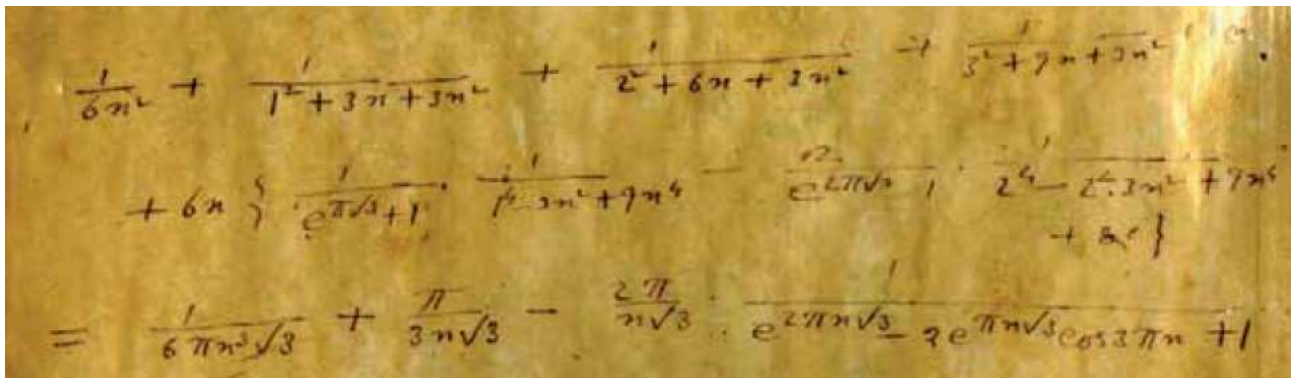 1/6n² + 1/(1²+3n+3n²) + 1/(2²+6n+3n²) + 1/(3²+9n+3n²) + &c.
+ 6n { 1/(e^{π√3}+1) · 1/(1⁴-3n²+9n⁴) - 2/(e^{2π√3}-1) · 1/(2⁴-2²·3n²+9n⁴)
+ &c }
= 1/(6πn³√3) + π/(3n√3) - 2π/(n√3) · 1/(e^{2πn√3} - 2e^{πn√3} cos 3πn + 1)